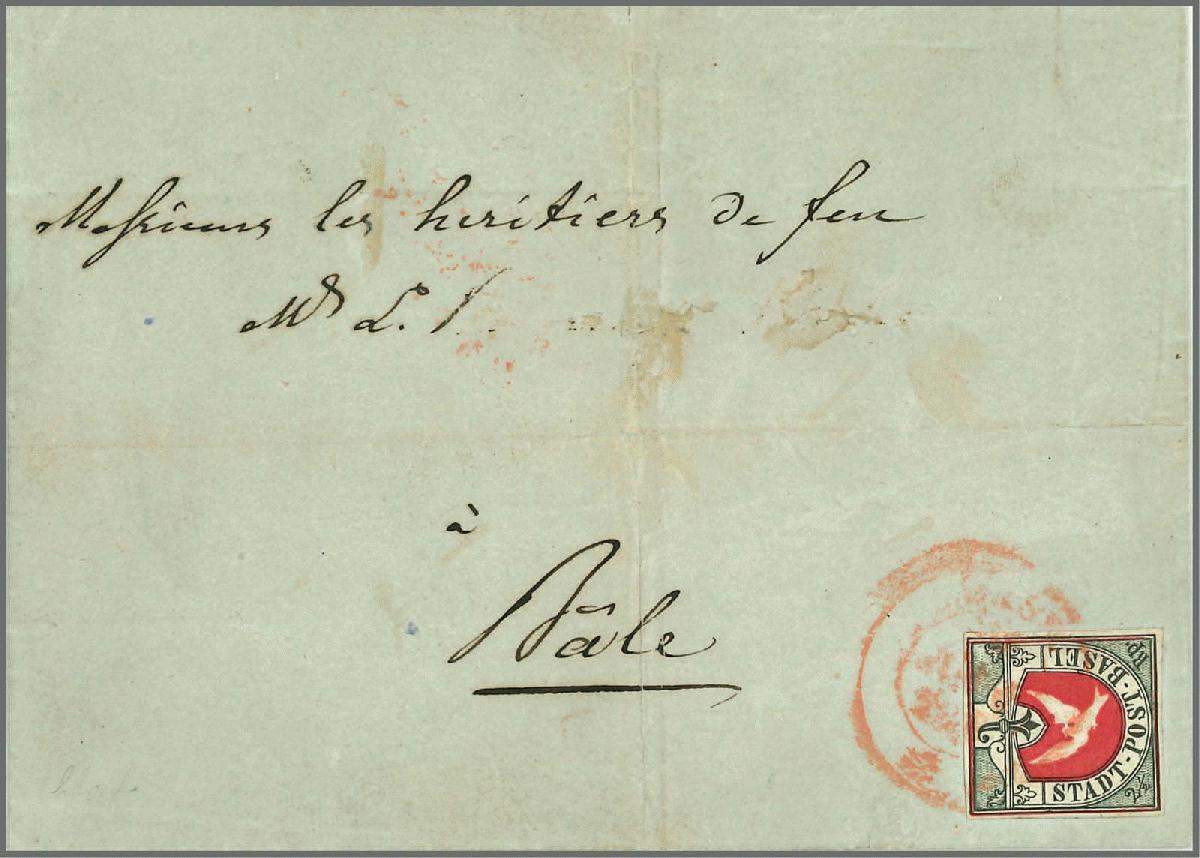 Messieurs les heritiers de feu
Mr L.
à
Bâle
STADT-POST-BASEL
2½ Rp.